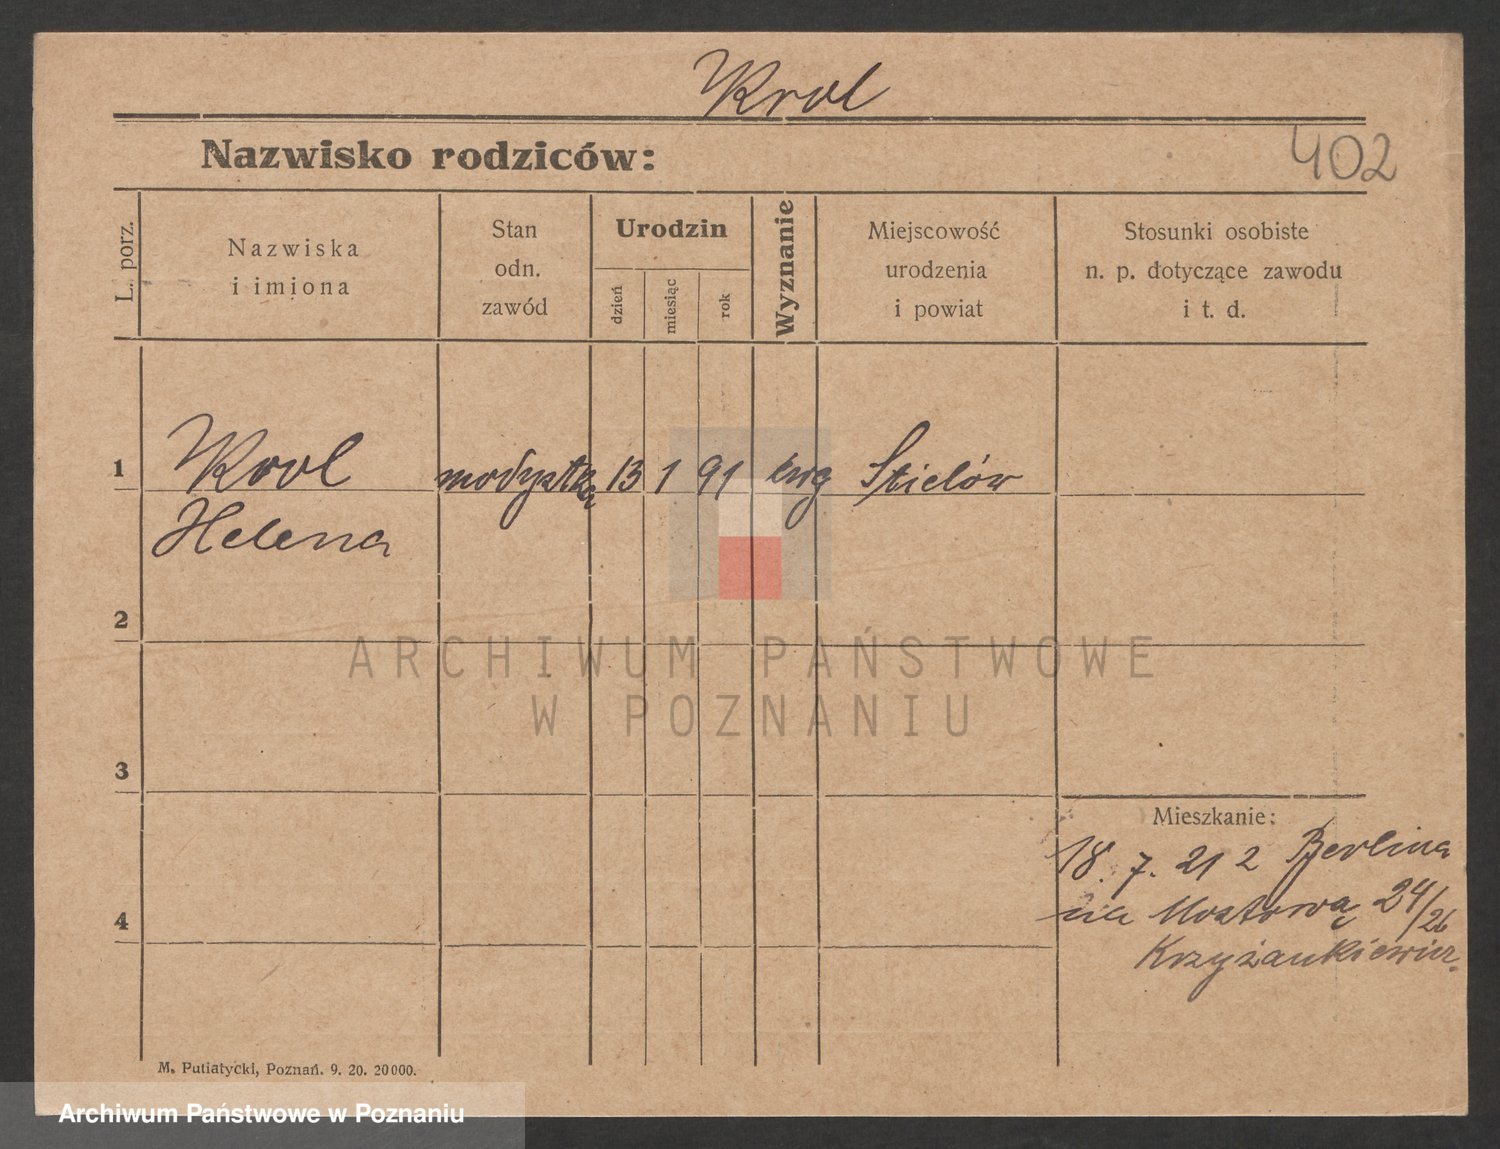 Krol
402
Nazwisko rodziców:
L. porz.
Nazwiska
i imiona
Stan
odn.
zawód
Urodzin
dzień
miesiąc
rok
Wyznanie
Miejscowość
urodzenia
i powiat
Stosunki osobiste
n. p. dotyczące zawodu
i t. d.
1 Krol modystka 13 1 91 ewg Stielów
Helena
2
3
4
Mieszkanie:
18. 7. 21 z Berlina
na Mostową 24/26
Krzyżankiewicz.
M. Putiatycki, Poznań. 9. 20. 20000.
ARCHIWUM PAŃSTWOWE
W POZNANIU
Archiwum Państwowe w Poznaniu